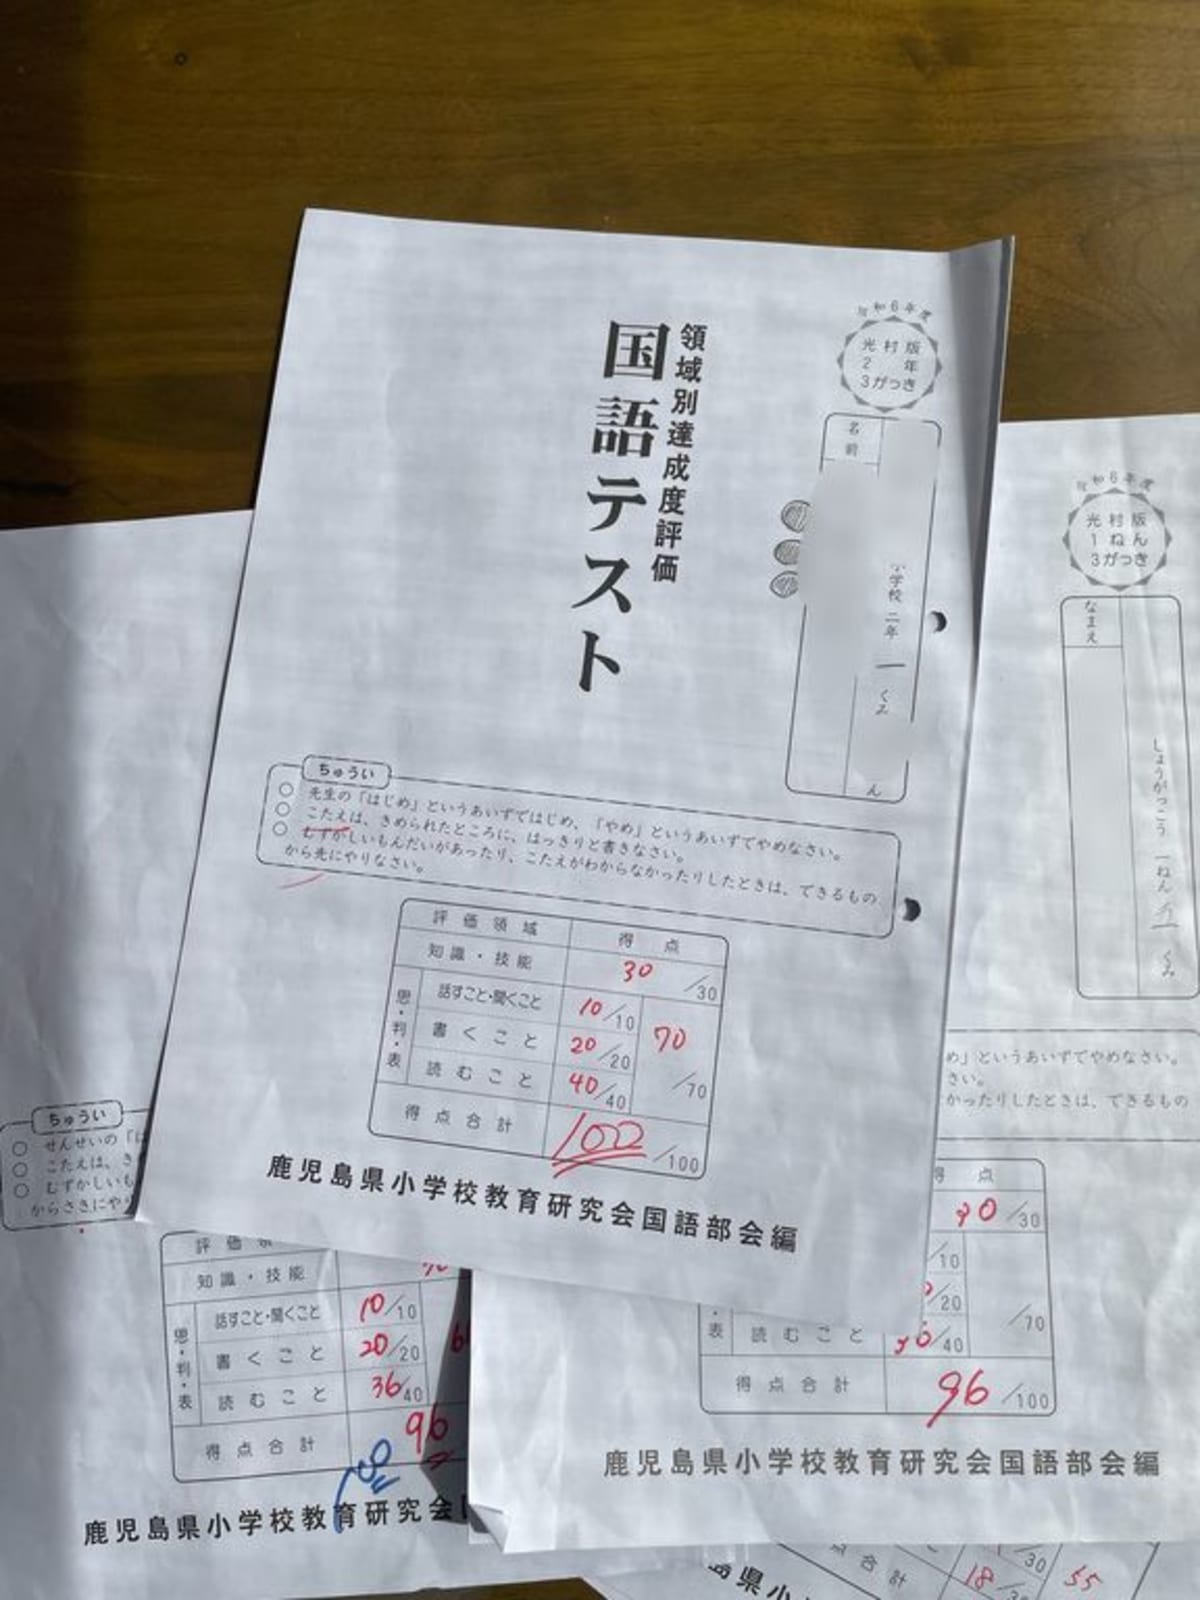 令和6年度
光村版
2年
3がっき
領域別達成度評価
国語テスト
名前
小学校 二年 一 くみ
ん
ちゅうい
○ 先生の「はじめ」というあいずではじめ、「やめ」というあいずでやめなさい。
○ こたえは、きめられたところに、はっきりと書きなさい。
○ むずかしいもんだいがあったり、こたえがわからなかったりしたときは、できるもの
から先にやりなさい。
評価領域 得点
知識・技能 30/30
思・判・表
話すこと・聞くこと 10/10
書くこと 20/20
読むこと 40/40
70/70
得点合計 100/100
鹿児島県小学校教育研究会国語部会編
令和6年度
光村版
1ねん
3がっき
なまえ
しょうがっこう 一ねん くみ
め」というあいずでやめなさい。
さい。
かったりしたときは、できるもの
得点
30/30
/10
/20
表 読むこと 36/40
/70
得点合計 96/100
鹿児島県小学校教育研究会国語部会編
ちゅうい
○ せんせいの「は
○ こたえは、き
○ むずかしいも
からさきにやり
評価領
知識・技能
思・判・表
話すこと・聞くこと 10/10
書くこと 20/20
読むこと 36/40
得点合計 96
鹿児島県小学校教育研究会
点合計
/30
18
55
島県小